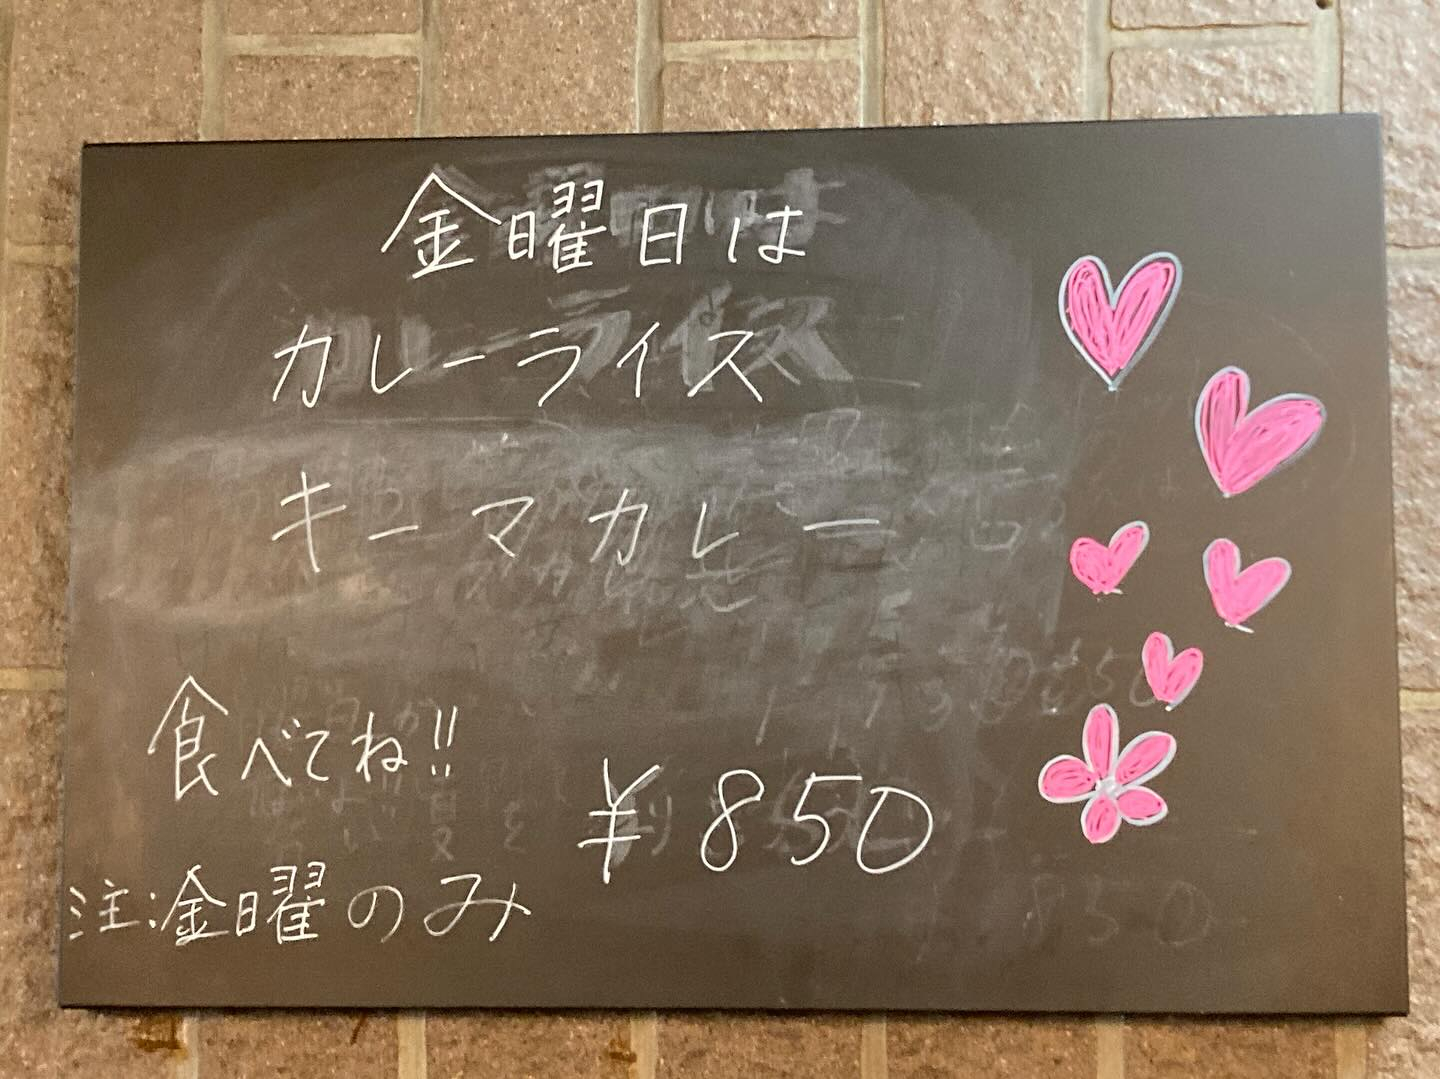 金曜日は
カレーライス
キーマカレー
食べてね!!
¥850
注:金曜のみ